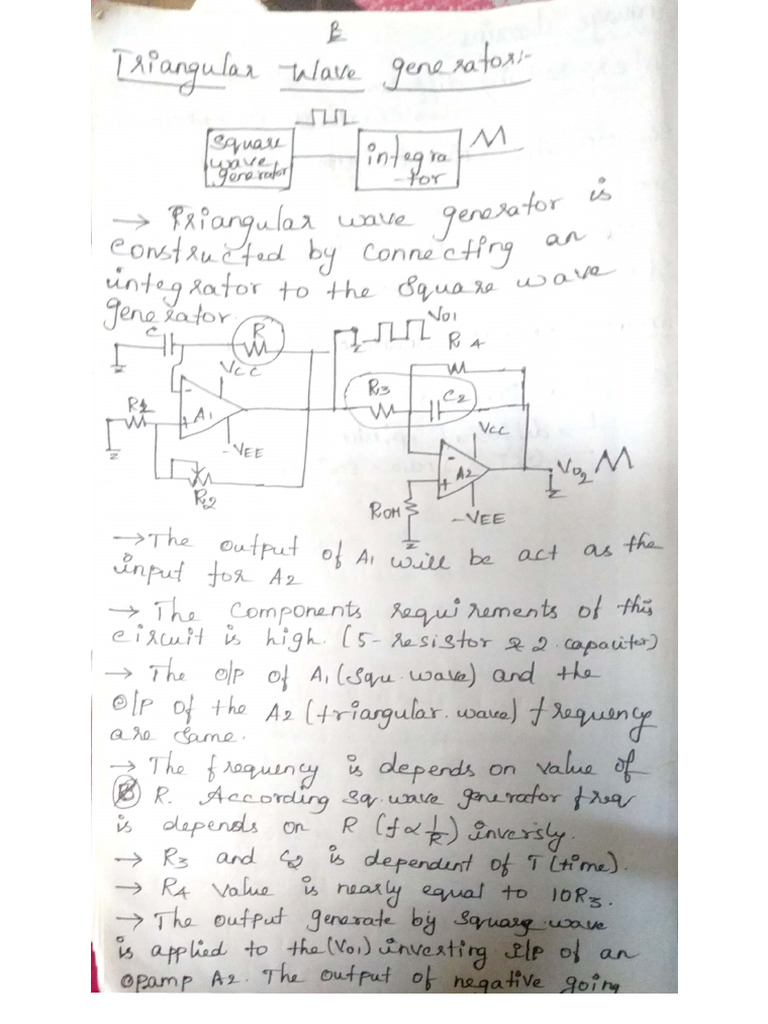 Triangular Wave generator:-
Square wave generator
integra-tor
→ Triangular wave generator is
constructed by connecting an
integrator to the square wave
generator.
C
R
Vo1
R4
VCC
R3
C2
R1
A1
VCC
-VEE
A2
Vo2
R2
ROM
-VEE
→ The output of A1 will be act as the
input for A2
→ The components requirements of this
circuit is high. (5-resistor & 2 capacitor)
→ The o/p of A1 (squ. wave) and the
o/p of the A2 (triangular. wave) frequency
are same.
→ The frequency is depends on value of
R. According sq. wave generator freq
is depends on R (f∝1/R) inversly.
→ R3 and C2 is dependent of T (time).
→ R4 value is nearly equal to 10R3.
→ The output generate by square wave
is applied to the (Vo1) inverting I/p of an
opamp A2. The output of negative going